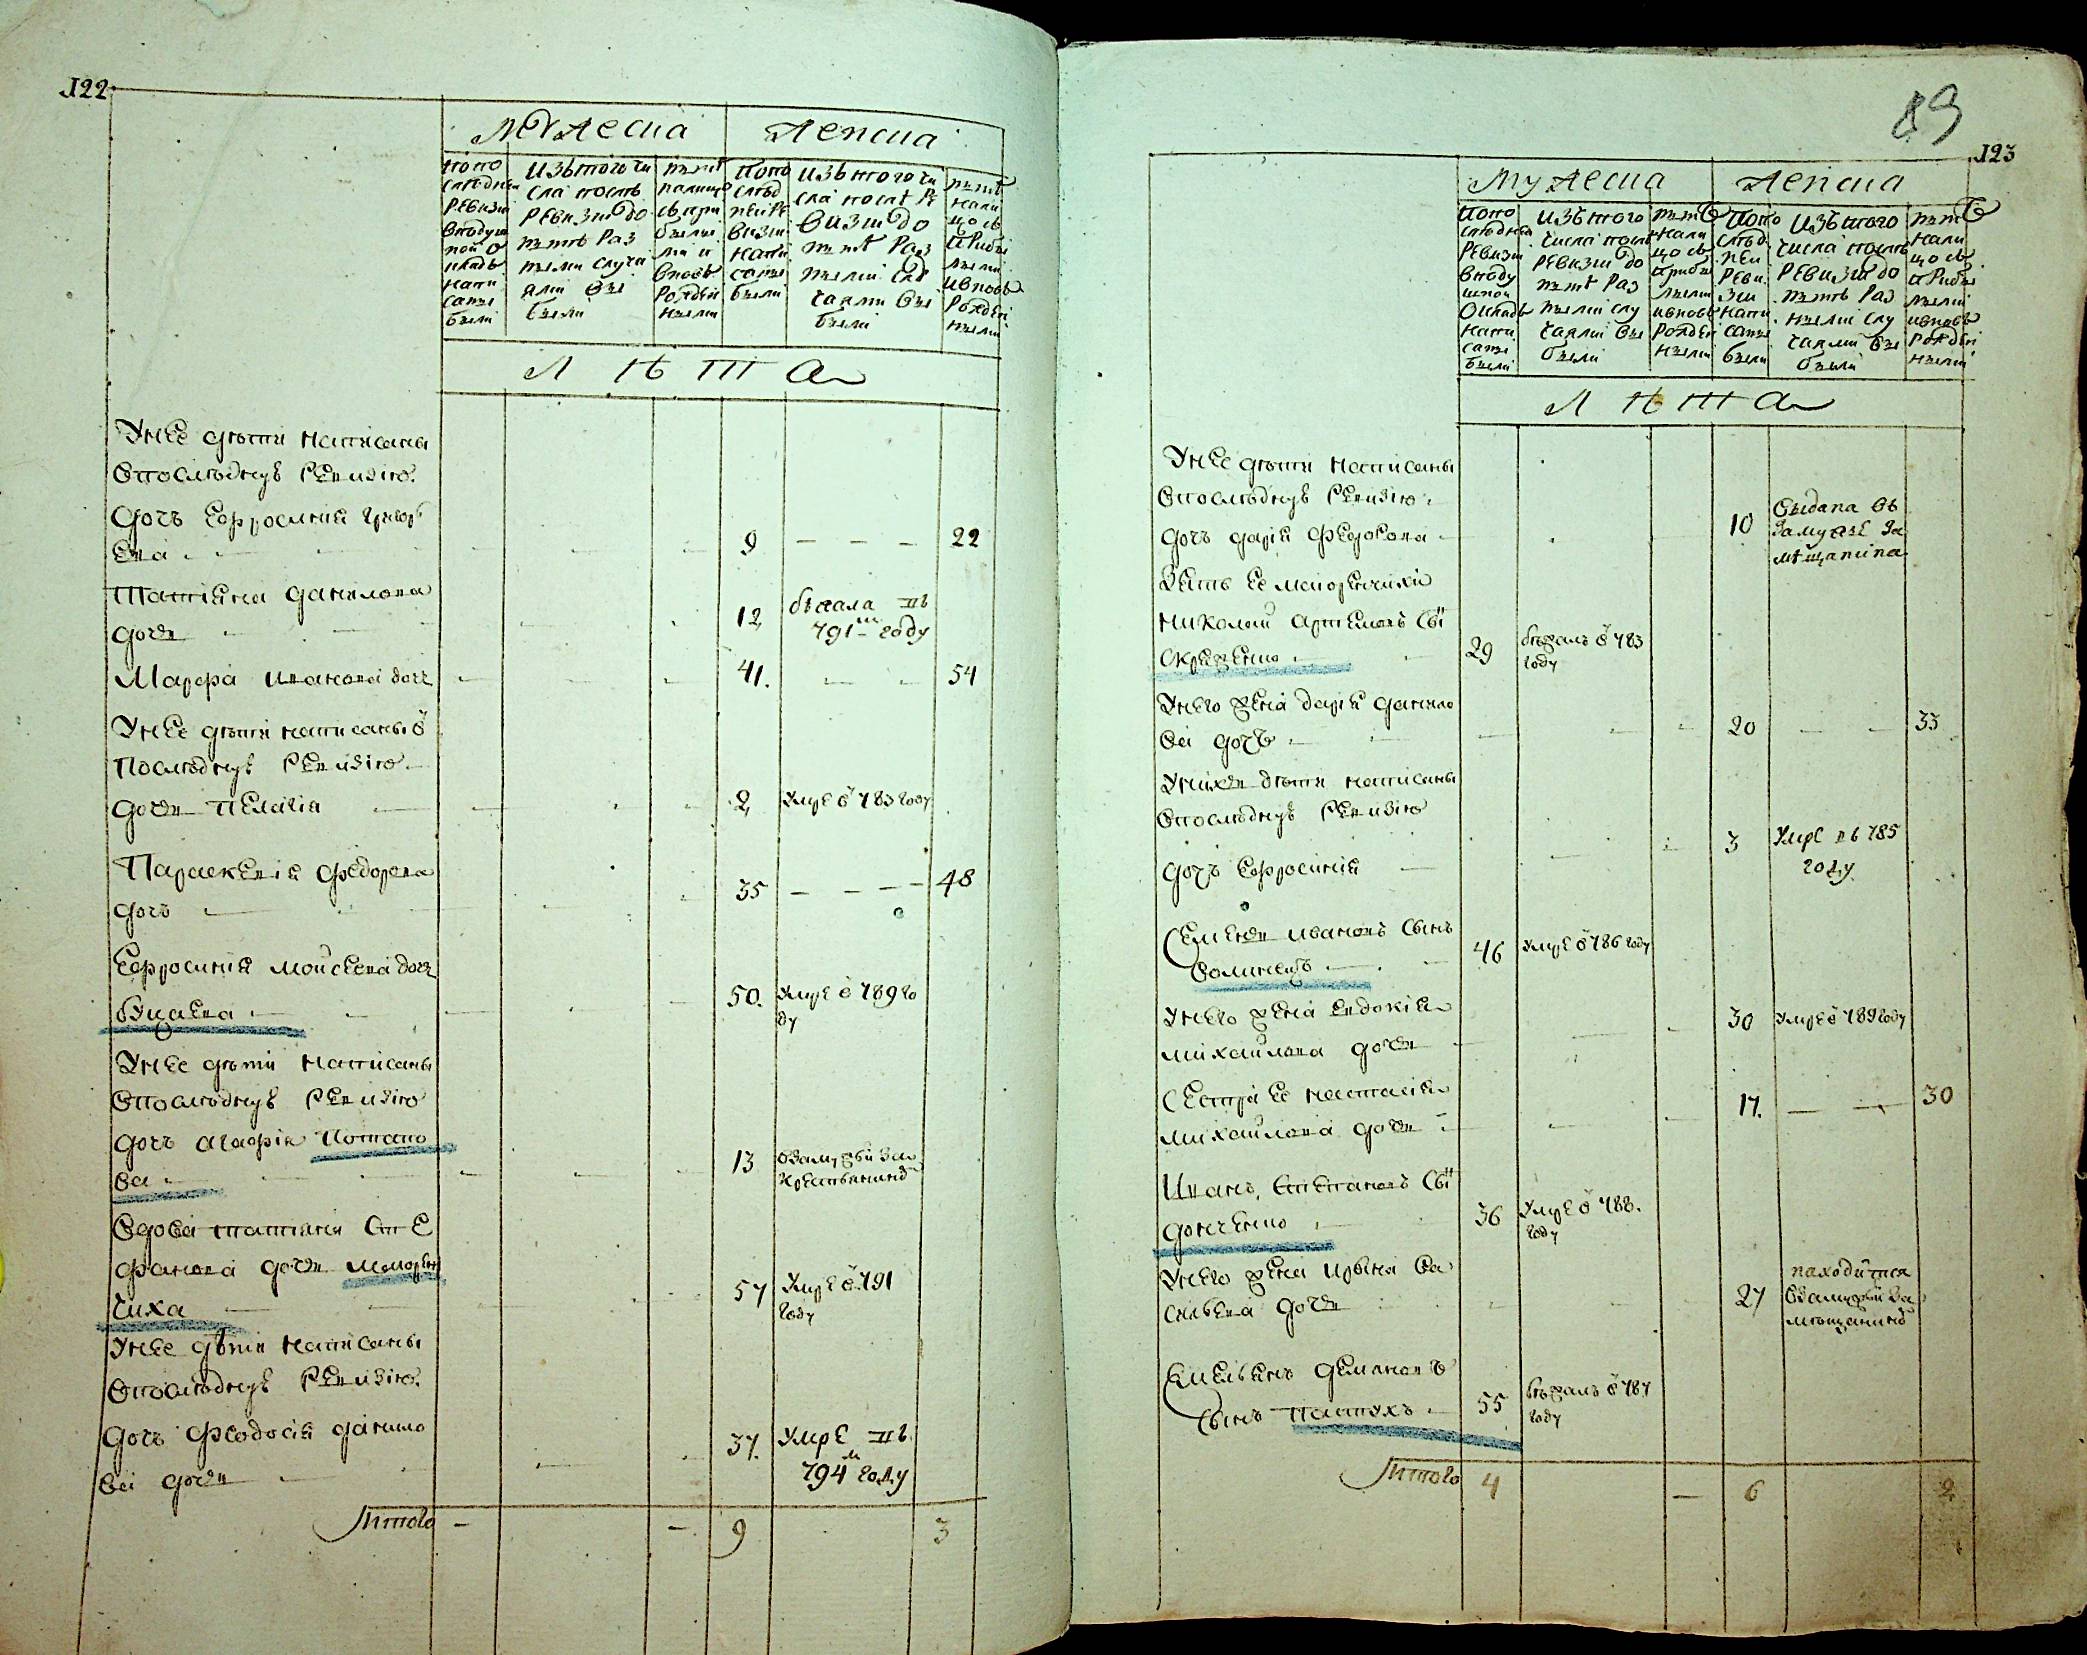 122
Мужеска Женска
Попо следней ревизи вподуш ной о кладъ напи саны были
Изътого чи сла послѣ ревизiи до нынѣ раз ными случа ями вы были
нынѣ налицо съ при былы ми и вновь рожден ными
Попо слѣд ней ре визiи напи саны были
изътого чи сла послѣ ре визiи до нынѣ раз ными слу чаями вы были
нынѣ нали цо съ прибы лыми ивновь рожден ными
Л ѣ т а
Унее дѣти написаны
впослѣднуъ ревизiю
дочь Ефросиния Григорь
ева 9 22
Татiяна Данилова
дочь 12 бежала въ 791м году
Марфа Иванова дочь 41. 54
Унее дѣти написаны в
послѣднуъ ревизiю
дочь Пелагiя 2 Умре в 783 году
Параскевия Федорова
дочь 35 48
Ефросиния Мойсеева дочь
Букаева 50. Умре в 789 го
ду
Унее дѣти написаны
впослѣднуъ ревизiю
дочь Агафiя Потапо
ва 13 Взамужъи за
крестьянинѣ
Вдова Татияна Сте
фанова дочь Маиорен
чиха 57 Умре в 791
году
Унее дѣти написаны
впослѣднуъ ревизiю
дочь Феодосия Данило
ва дочь 37. Умре въ
794м году
Итого - - 9 3
89
123
Мужеска Женска
Попо следней ревизи вподу шной окладъ напи саны были
изътого числа послѣ ревизiи до нынѣ раз ными слу чаями вы были
нынѣ нали цо съ прибы лыми ивновь рожден ными
Попо слѣд ней реви зiи напи саны были
изътого числа послѣ ревизiи до нынѣ раз ными слу чаями вы были
нынѣ нали цо съ прибы лыми ивновь рожден ными
Л ѣ т а
Унее дѣти написаны
впослѣднуъ ревизiю
дочь Дария Федорова 10 Выдана въ
замужъе за
мѣщанина
Зять ее Маиоренчихи
Николай Артемовъ сын
Скреженто 29 бѣжалъ в 783
году
Унего жена Дария Данило
ва дочь 20 33
Унихъ дѣти написаны
впослѣднуъ ревизiю
дочь Ефросиния 3 Умре въ 785
году
Семенъ Ивановъ сынъ
Волинецъ 46 Умре в 786 году
Унего жена Евдокiя
Михайлова дочь 30 Умре в 789 году
Сестра ее Настасiя
Михайлова дочь 17. 30
Иванъ Степановъ сын
Донченко 36 Умре в 788.
году
Унего жена Ирина Ва
сильева дочь 27 находится
взамужъи за
мѣщанинѣ
Емельянъ Демяновъ
сынъ Пастухъ 55 бѣжалъ в 787
году
Итого 4 - 6 2